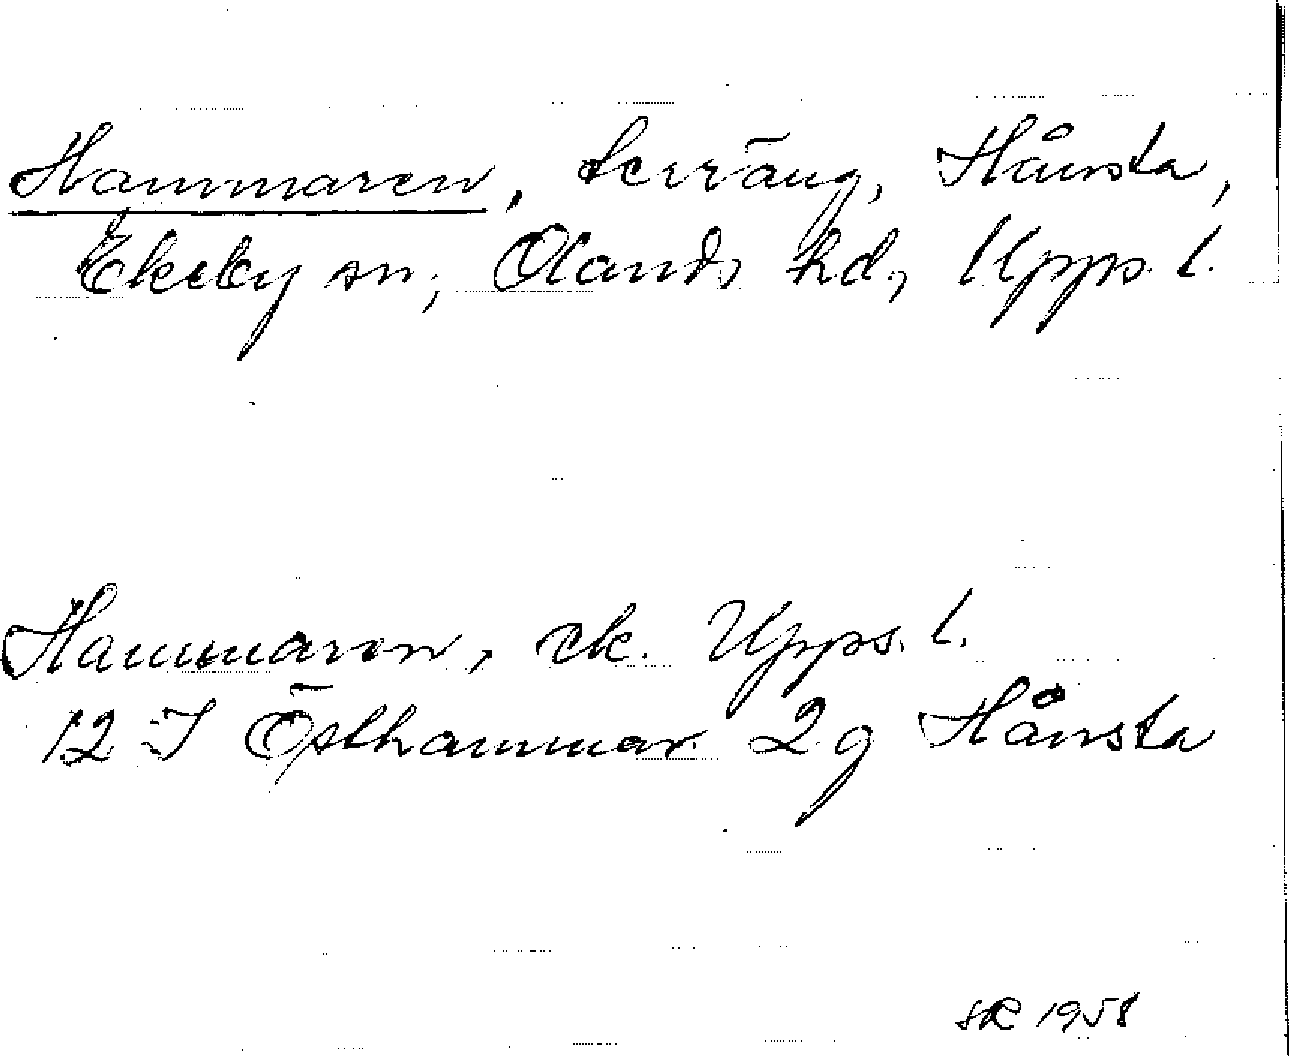 Hammaren, terräng, Hånsta,
Ekeby sn, Olands hd, Upps. l.
Hammaren, ek. Upps. l.
12 I Östhammar 2g Hånsta
SR 1958